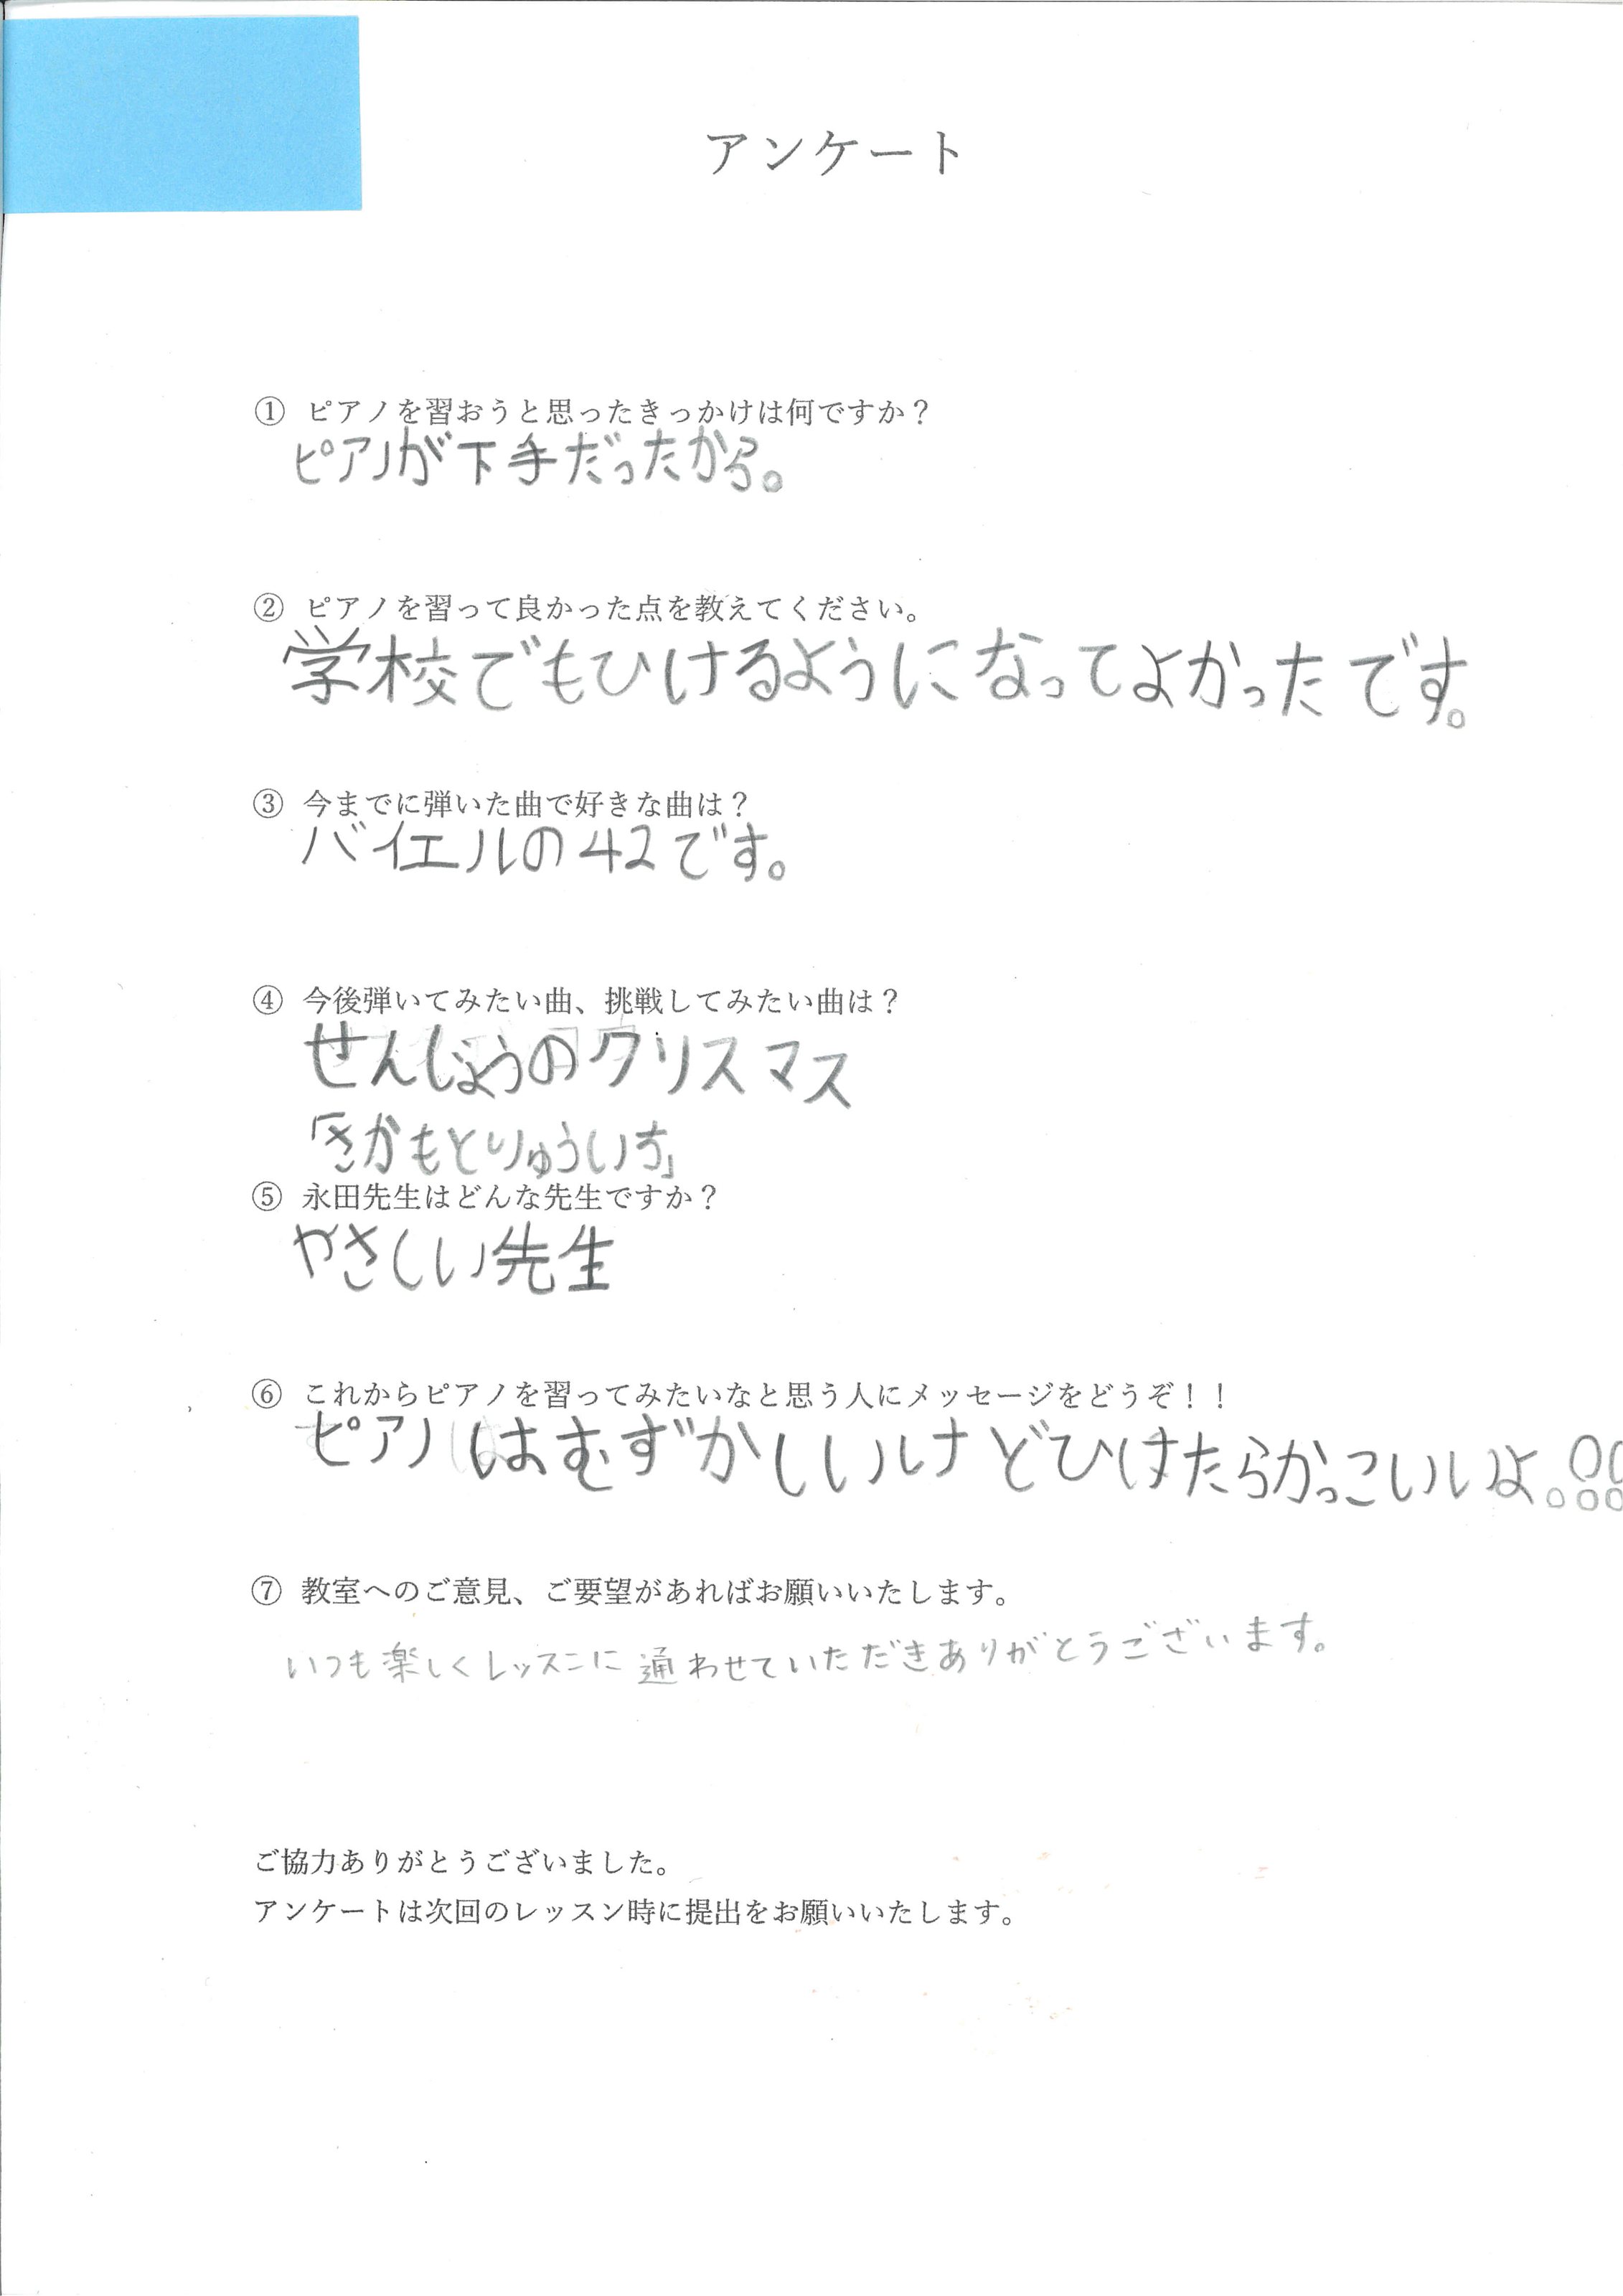 アンケート
① ピアノを習おうと思ったきっかけは何ですか？
ピアノが下手だったから。
② ピアノを習って良かった点を教えてください。
学校でもひけるようになってよかったです。
③ 今までに弾いた曲で好きな曲は？
バイエルの42です。
④ 今後弾いてみたい曲、挑戦してみたい曲は？
せんじょうのクリスマス
「さかもとりゅういち」
⑤ 永田先生はどんな先生ですか？
やさしい先生
⑥ これからピアノを習ってみたいなと思う人にメッセージをどうぞ！！
ピアノはむずかしいけどひけたらかっこいいよ。!!
⑦ 教室へのご意見、ご要望があればお願いいたします。
いつも楽しくレッスンに通わせていただきありがとうございます。
ご協力ありがとうございました。
アンケートは次回のレッスン時に提出をお願いいたします。